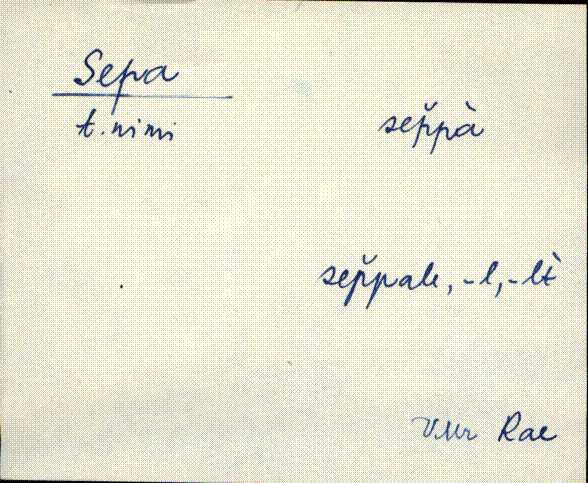 Sepa
t. nimi
sep̆pà
sep̆pale, -l, -lt̀
VMr Rae